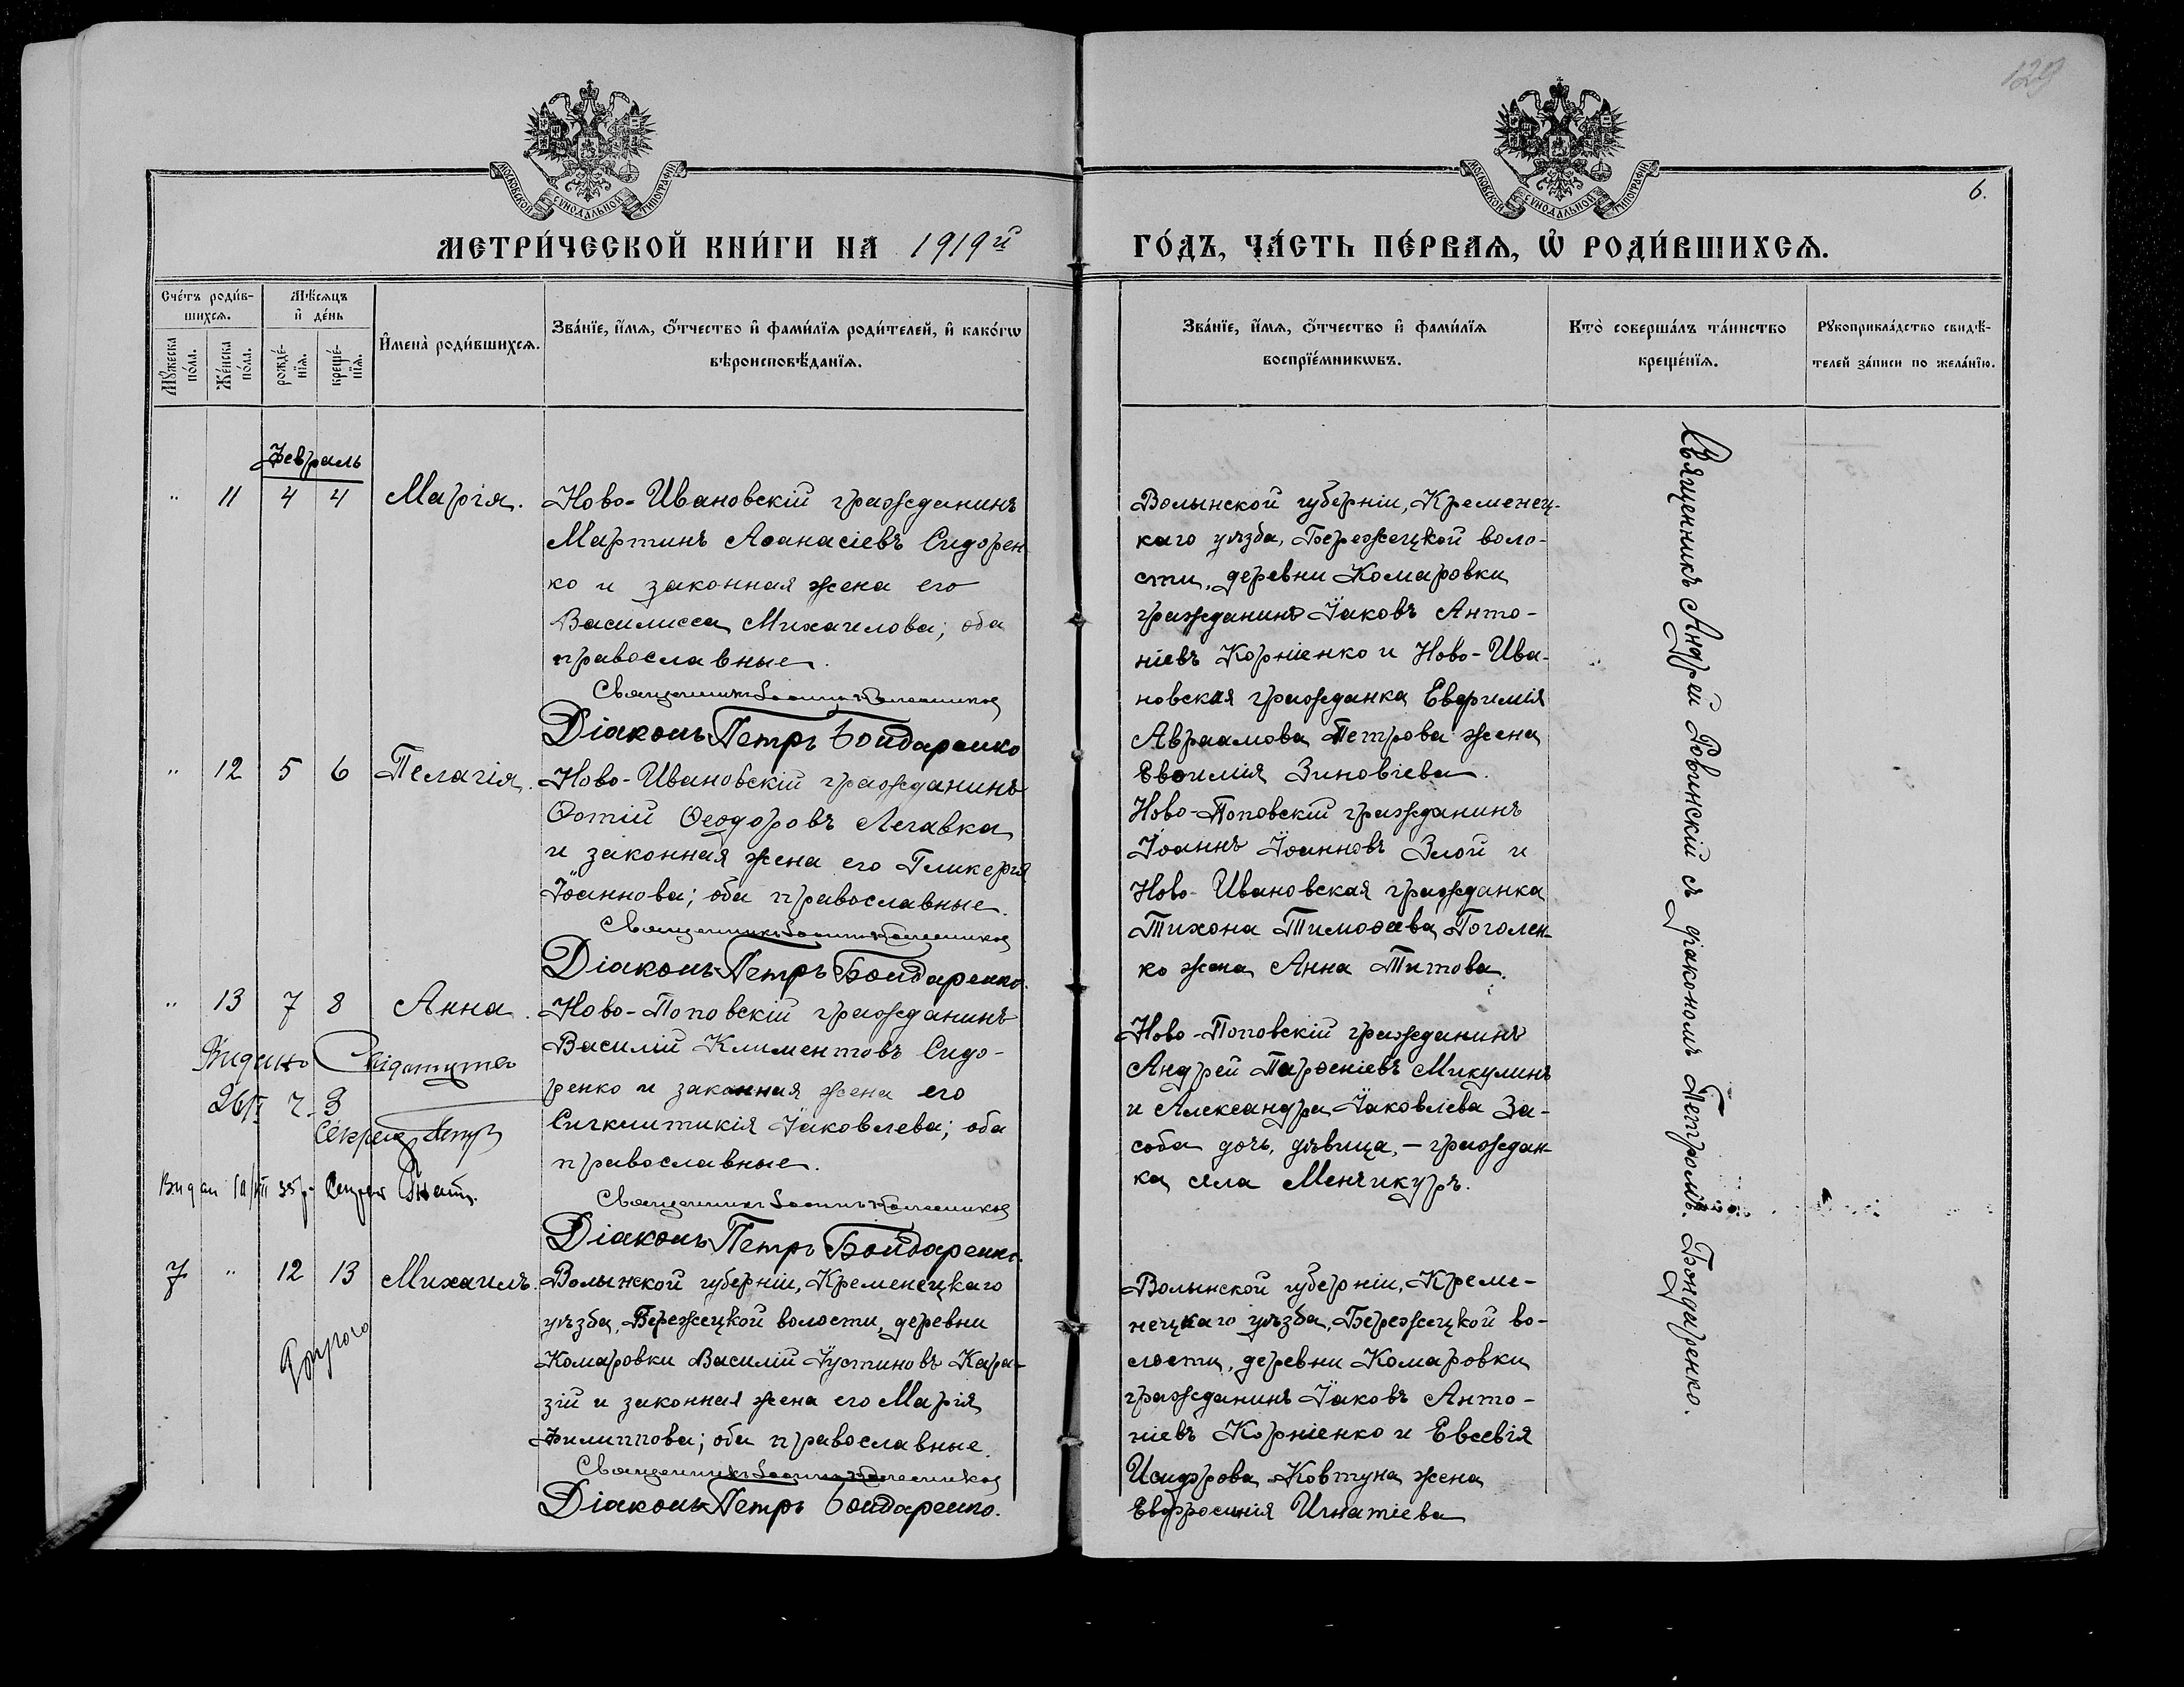 129
МОСКОВСКОЙ СѴНОДАЛЬНОЙ ТИПОГРАФІИ
МОСКОВСКОЙ СѴНОДАЛЬНОЙ ТИПОГРАФІИ
6.
МЕТРИ́ЧЕСКОЙ КНИ́ГИ НА 1919й ГО́ДЪ, ЧА́СТЬ ПЕ́РВАѦ, Ѡ҆ РОДИ́ВШИХСѦ.
Сче́тъ роди́в-
шихсѧ.
Мꙋ́жеска по́ла.
Же́нска по́ла.
Мѣ́сѧцъ
и҆ де́нь
рожде́-
нїѧ.
креще́-
нїѧ.
И҆мена̀ роди́вшихсѧ.
Зва́нїе, и҆́мѧ, ѻ҆́тчество и҆ фами́лїѧ роди́телей, и҆ како́гѡ
вѣроисповѣ́данїѧ.
Зва́нїе, и҆́мѧ, ѻ҆́тчество и҆ фами́лїѧ
воспрїе́мникѡвъ.
Кто̀ соверша́лъ та́инство
креще́нїѧ.
Рꙋкоприкла́дство свидѣ́-
телей за́писи по жела́нїю.
Февраль
" 11 4 4 Марія. Ново-Ивановскій гражданинъ
Мартинъ Аѳанасіевъ Сидорен
ко и законная жена его
Василисса Михаилова; оба
православные.
Священникъ Іоаннъ
Діаконъ Петръ Бондаренко
Волынской губерніи, Кременец-
каго уѣзда, Бережецкой воло-
сти, деревни Комаровки
гражданинъ Іаковъ Анто-
ніевъ Корніенко и Ново-Ива-
новская гражданка Евфимія
Авраамова Петрова жена
Евѳимія Зиновіева.
" 12 5 6 Пелагія. Ново-Ивановскій гражданинъ
Фотій Ѳеодоровъ Легавка
и законная жена его Гликерія
Іоаннова; оба православные.
Священникъ Іоаннъ
Діаконъ Петръ Бондаренко.
Ново-Поповскій гражданинъ
Іоаннъ Іоанновъ Злой и
Ново-Ивановская гражданка
Тихона Тимоѳеева Гоголен-
ко жена Анна Титова.
" 13 7 8 Анна. Ново-Поповскій гражданинъ
Василій Климентовъ Сидо-
ренко и законная жена его
Сигклитикія Іаковлева; оба
православные.
Священникъ Іоаннъ
Діаконъ Петръ Бондаренко.
Видано
Секрет
Видан
Ново-Поповскій гражданинъ
Андрей Парѳеніевъ Микулинъ
и Александра Іаковлева За-
соба дочь, дѣвица, – граждан-
ка села Менчикуръ.
7 " 12 13 Михаилъ. Волынской губерніи, Кременецкаго
уѣзда, Бережецкой волости, деревни
Комаровки Василій Іустиновъ Кара-
зій и законная жена его Марія
Филиппова; оба православные.
Священникъ Іоаннъ
Діаконъ Петръ Бондаренко.
Волынской губерніи, Креме-
нецкаго уѣзда, Бережецкой во-
лости, деревни Комаровки
гражданинъ Іаковъ Анто-
ніевъ Корніенко и Евсевія
Исидорова Ковтуна жена
Евфросинія Игнатіева
Священникъ Андрей Ровинскій съ діакономъ Петромъ Бондаренко.